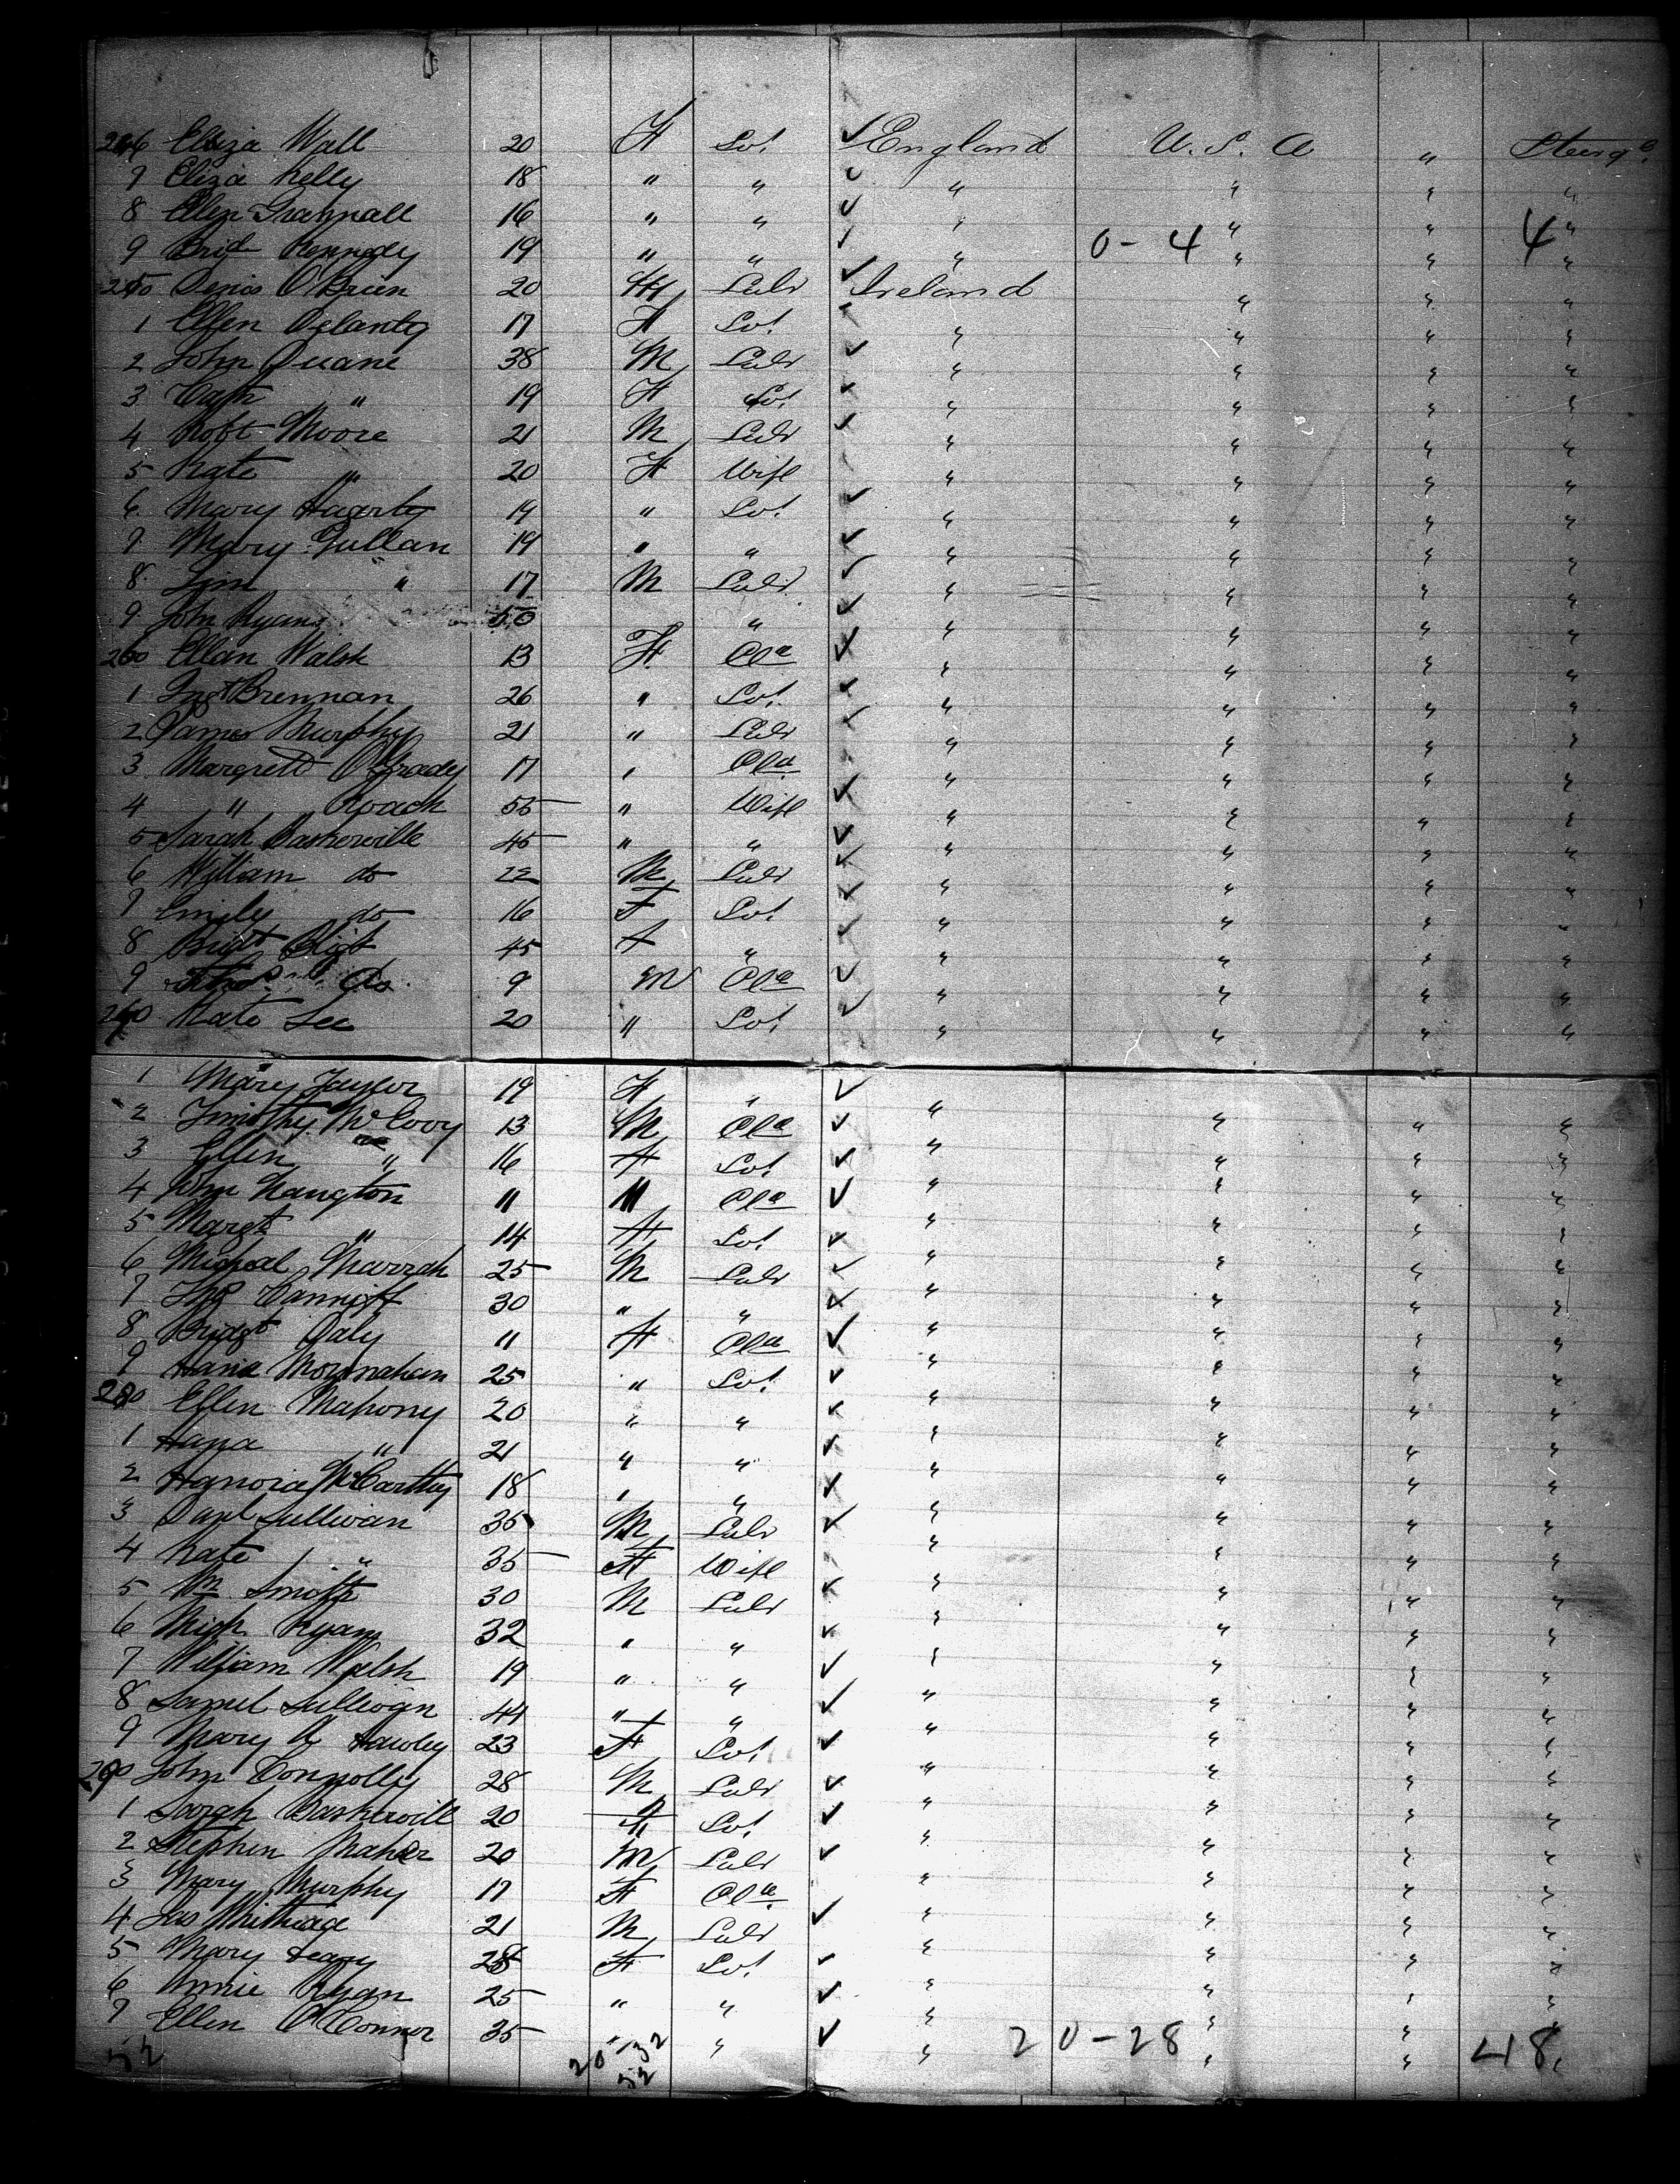 246 Eliza Wall 20 F Sot ✓ England U.S.A " Sterge
7 Eliza Kelly 18 " " ✓ " " " "
8 Ellen Grannall 16 " " ✓ " " " "
9 Brid Kennedy 19 " " ✓ " 0-4 " " 4 "
250 Denis O'Brien 20 M Labr ✓ Ireland " " "
1 Ellen Delanty 17 F Sot ✓ " " " "
2 John Duane 38 M Labr ✓ " " " "
3 Cath " 19 F Sot ✓ " " " "
4 Robt Moore 21 M Labr ✓ " " " "
5 Kate " 20 F Wife " " " "
6 Mary Hagerty 19 " Sot ✓ " " " "
7 Mary Gullan 19 " " ✓ " " " "
8 Jim " 17 M Labr ✓ " " " "
9 John Ryan 50 " ✓ " " " "
260 Ellan Walsh 13 F Cla ✓ " " " "
1 Brennan 26 " Sot ✓ " " " "
2 James Murphy 21 " Labr ✓ " " " "
3 Margrett O'Grady 17 " Cla " " " "
4 " Roach 55 " Wife ✓ " " " "
5 Sarah Baskerville 45 " " ✓ " " " "
6 William do 22 M Labr ✓ " " " "
7 Emily do 16 F Sot ✓ " " " "
8 Bridt 45 F " ✓ " " " "
9 do 9 M Cla ✓ " " " "
Kate Lee 20 " Sot ✓ " " " "
1 Mary Taylor 19 F " ✓ " " " "
2 Timothy McEvoy 13 M Cla ✓ " " " "
3 Ellen " 16 F Sot ✓ " " " "
4 John Naugton 11 M Cla ✓ " " " "
5 Margt " 14 F Sot ✓ " " " "
6 Micheal 25 M Labr ✓ " " " "
7 Thos 30 " " ✓ " " " "
8 Bridgt Daly 11 F Cla ✓ " " " "
9 Hana Moynnahan 25 " Sot ✓ " " " "
280 Ellen Mahony 20 " " ✓ " " " "
1 Hana " 21 " " ✓ " " " "
2 Hanoria McCarthy 18 " " ✓ " " " "
3 Danl Sullivan 35 M Labr ✓ " " " "
4 Kate " 35 F Wife " " " "
5 Wm Smith 30 M Labr ✓ " " " "
6 Mich Ryan 32 " " ✓ " " " "
7 William Walsh 19 " " ✓ " " " "
8 Samul Sullivan 44 " " ✓ " " " "
9 Mary A Hawley 23 F Sot ✓ " " " "
290 John Connolly 28 M Labr ✓ " " " "
1 Sarah Baskervill 20 F Sot ✓ " " " "
2 Stephen Maher 20 M Labr ✓ " " " "
3 Mary Murphy 17 F Cla " " " "
4 Jas 21 M Labr ✓ " " " "
5 Mary Leary 28 F Sot ✓ " " " "
6 Annie Ryan 25 " " ✓ " " " "
7 Ellen O'Connor 35 " " ✓ " 20-28 " " 48
52 20 32
52